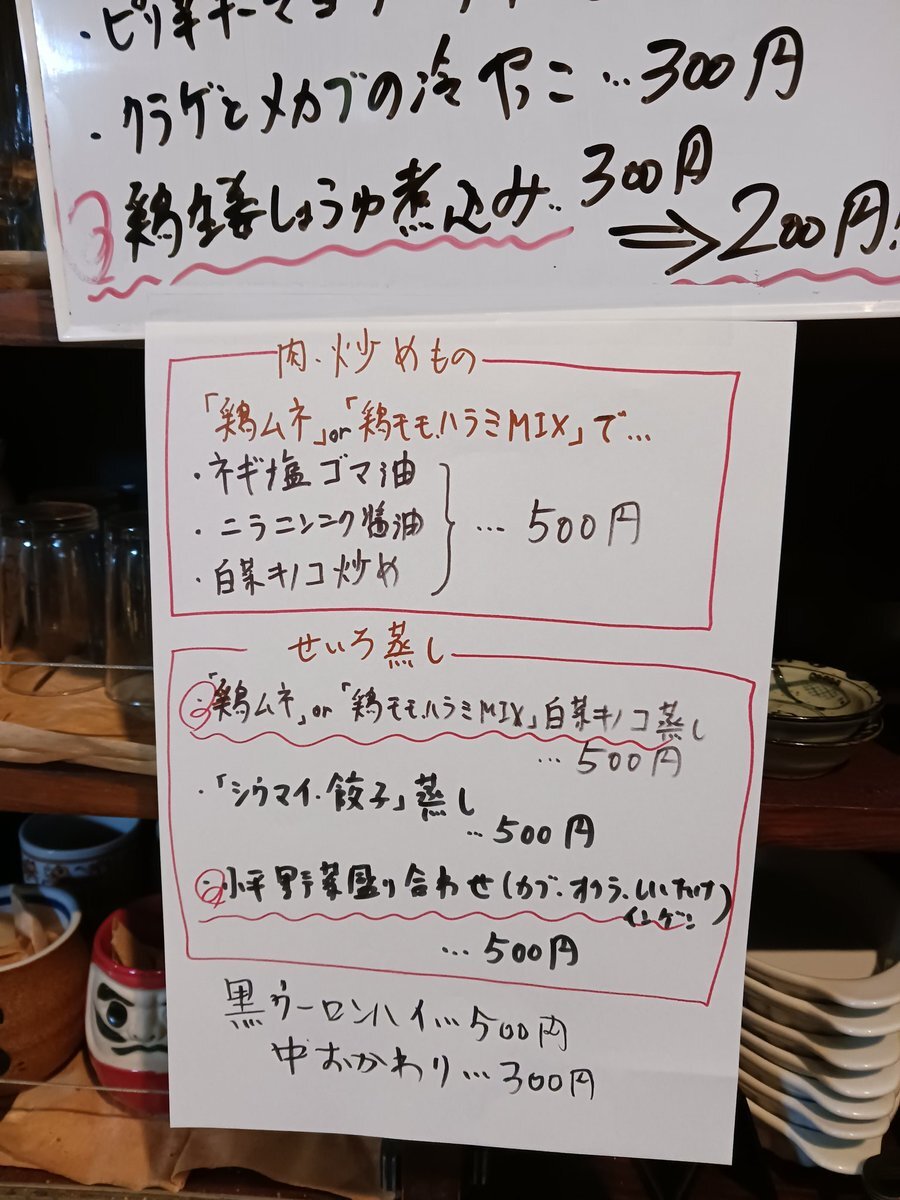 ・ピリ辛
・クラゲとメカブの冷やっこ…300円
鶏生姜しょうゆ煮込み…300円
⇒200円!
肉・炒めもの
「鶏ムネ」or「鶏モモ.ハラミMIX」で…
・ネギ塩ゴマ油
・ニラニンニク醤油
・白菜キノコ炒め
…500円
せいろ蒸し
・「鶏ムネ」or「鶏モモ.ハラミMIX」白菜キノコ蒸し
…500円
・「シウマイ・餃子」蒸し
…500円
・小平野菜盛り合わせ(カブ・オクラ・しいたけ
インゲン)
…500円
黒ウーロンハイ…500円
中おかわり…300円